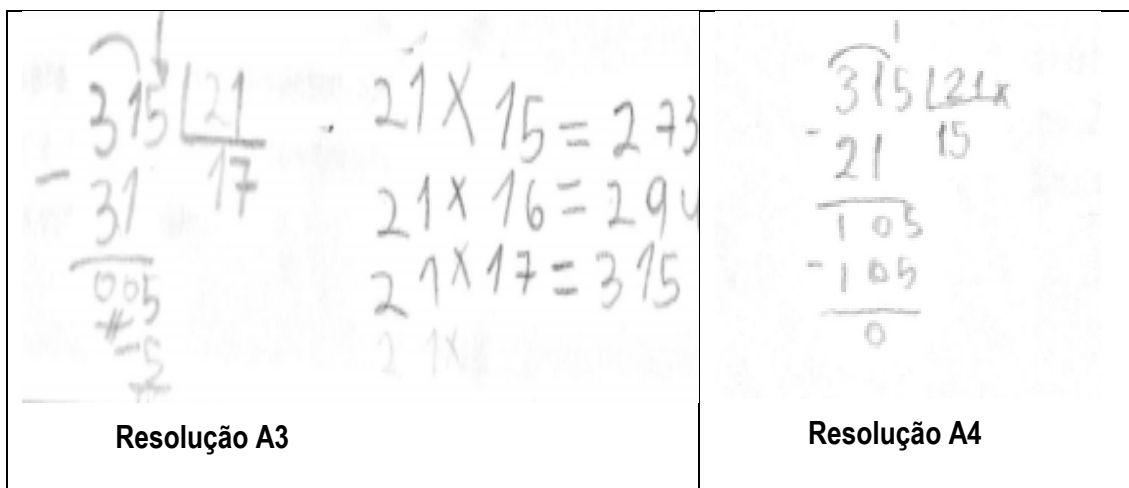 315 21
- 31 17
005
-5
21 X 15 = 273
21 X 16 = 294
21 X 17 = 315
21X
Resolução A3
1
315 21x
- 21 15
105
- 105
0
Resolução A4